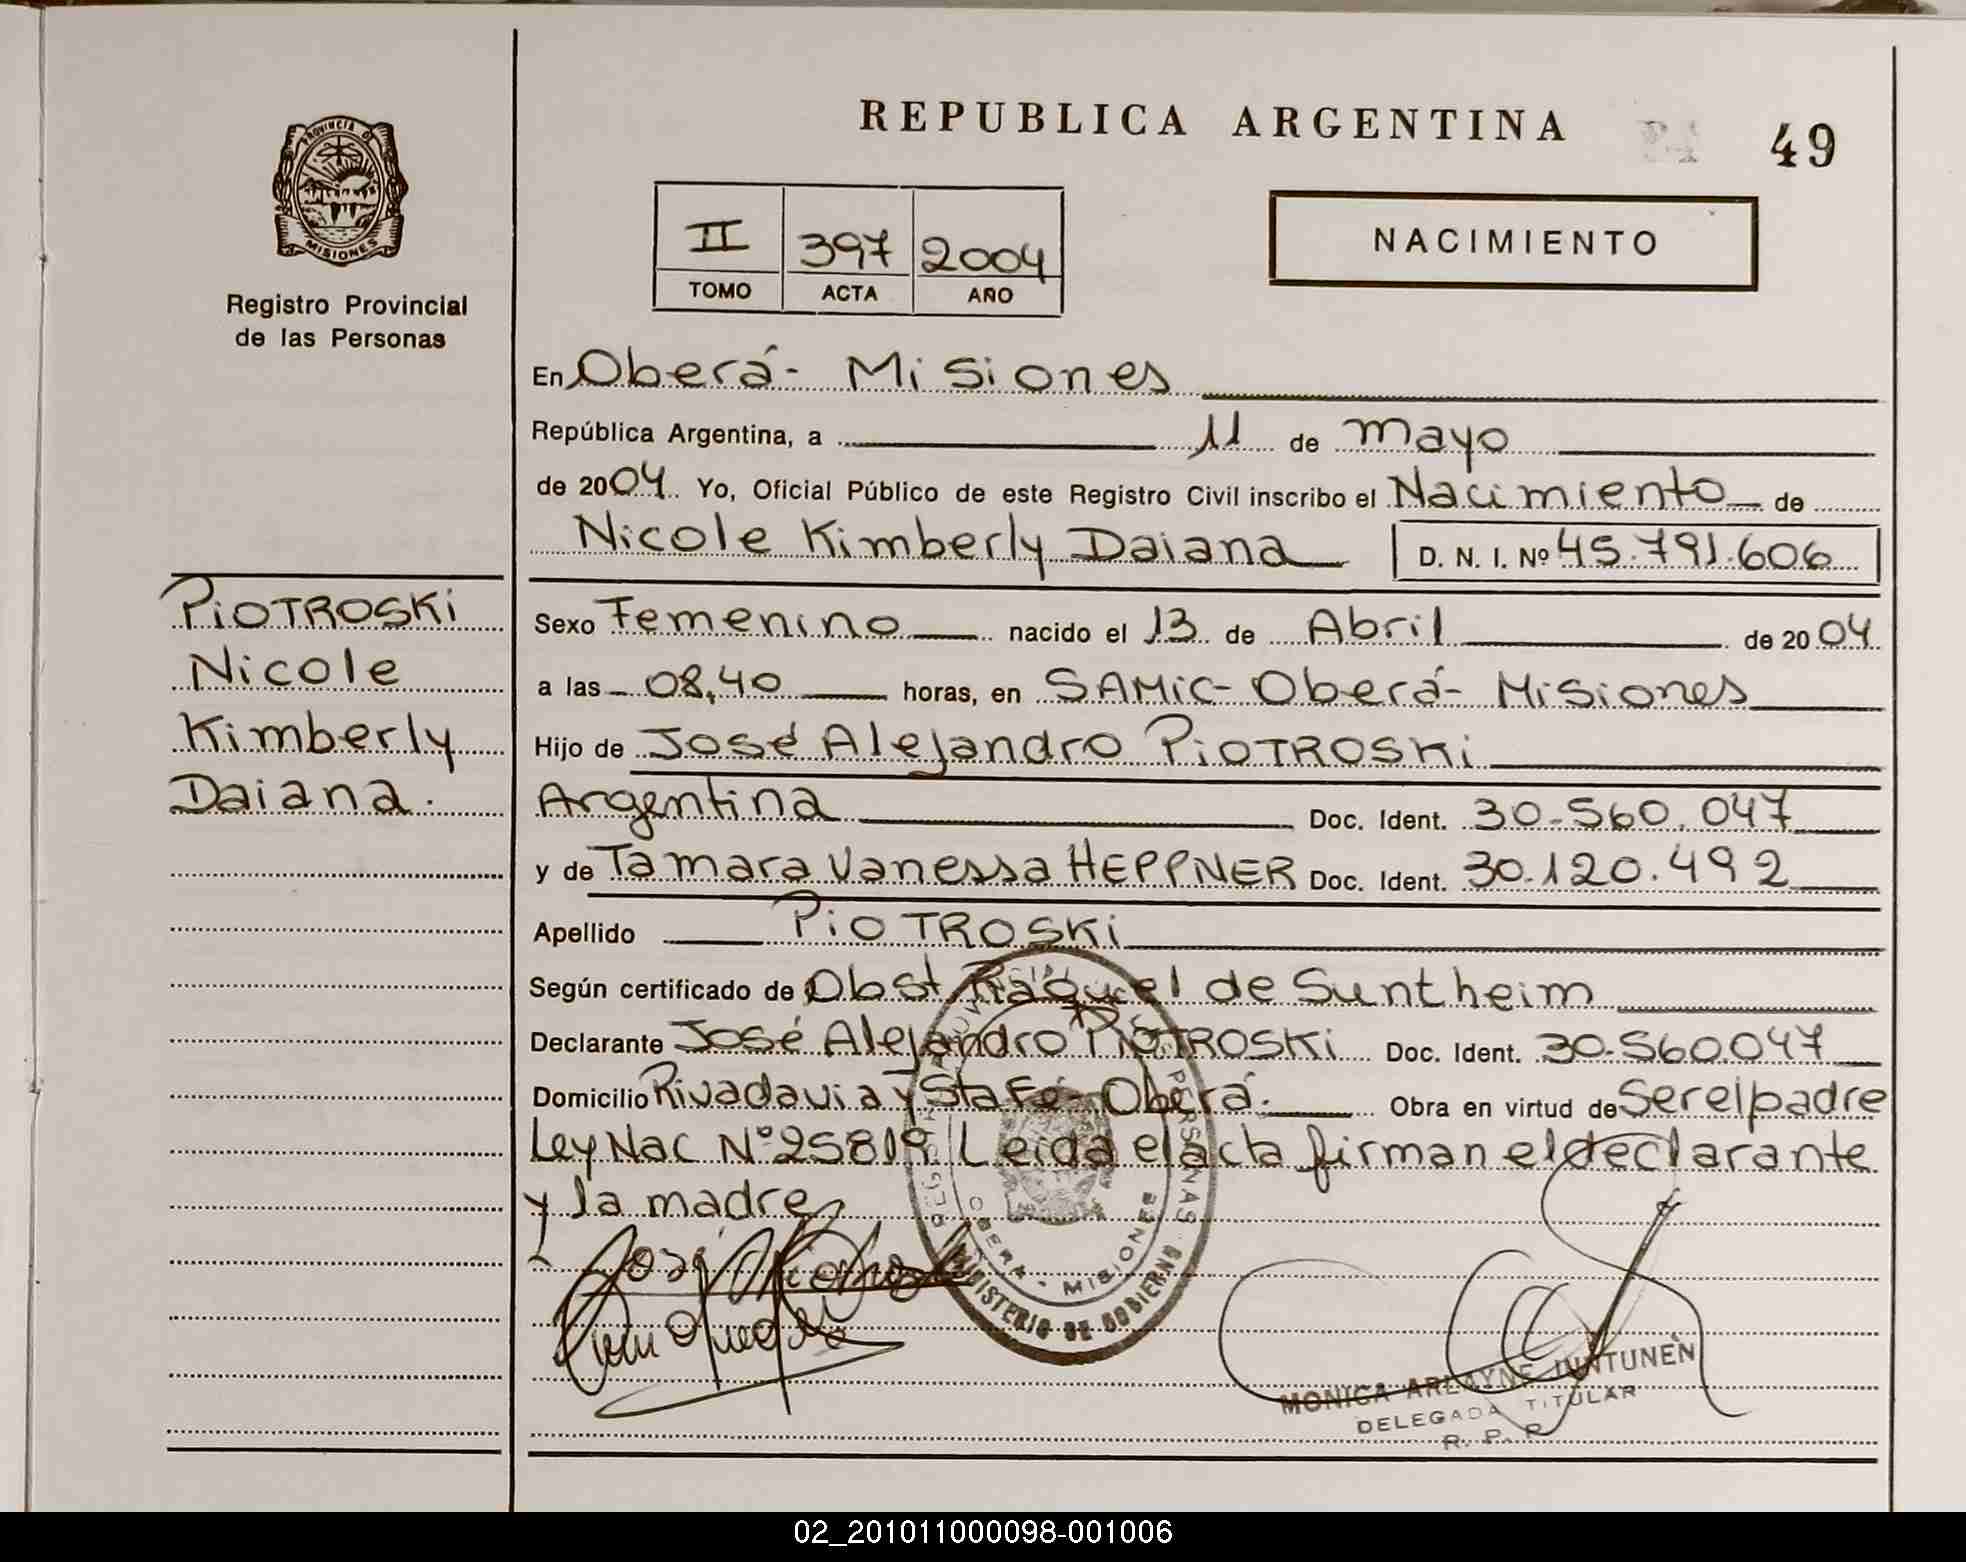 REPUBLICA ARGENTINA
49
PROVINCIA DE
MISIONES
Registro Provincial
de las Personas
II 397 2004
TOMO ACTA AÑO
NACIMIENTO
En Oberá - Misiones
República Argentina, a 11 de mayo
de 2004 Yo, Oficial Público de este Registro Civil inscribo el Nacimiento de
Nicole Kimberly Daiana D. N. I. Nº 45.791.606
PiOTROSKi
Nicole
Kimberly
Daiana.
Sexo Femenino nacido el 13 de Abril de 2004
a las 08,40 horas, en SAMiC - Oberá - Misiones
Hijo de José Alejandro PiOTROSKi
Argentina Doc. Ident. 30.560.047
y de Tamara Vanessa HEPPNER Doc. Ident. 30.120.492
Apellido PiOTROSKi
Según certificado de Obst Raquel de Suntheim
Declarante José Alejandro PiOTROSKi Doc. Ident. 30.560.047
Domicilio Rivadavia y Sta Fé - Oberá. Obra en virtud de Ser el padre
Ley Nac Nº 25819 Leida el acta firman el declarante
y la madre
PERSONAS
OBERA - MISIONES
MINISTERIO DE GOBIERNO
MONICA ARLAYNE
DELEGADA TITULAR
R. P. P.
02_201011000098-001006